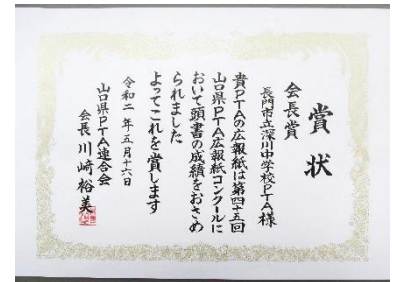 賞状
会長賞
長門市立深川中学校PTA様
貴PTAの広報紙は第四十五回
山口県PTA広報紙コンクールに
おいて頭書の成績をおさめ
られました
よってこれを賞します
令和二年五月十六日
山口県PTA連合会
会長 川﨑裕美